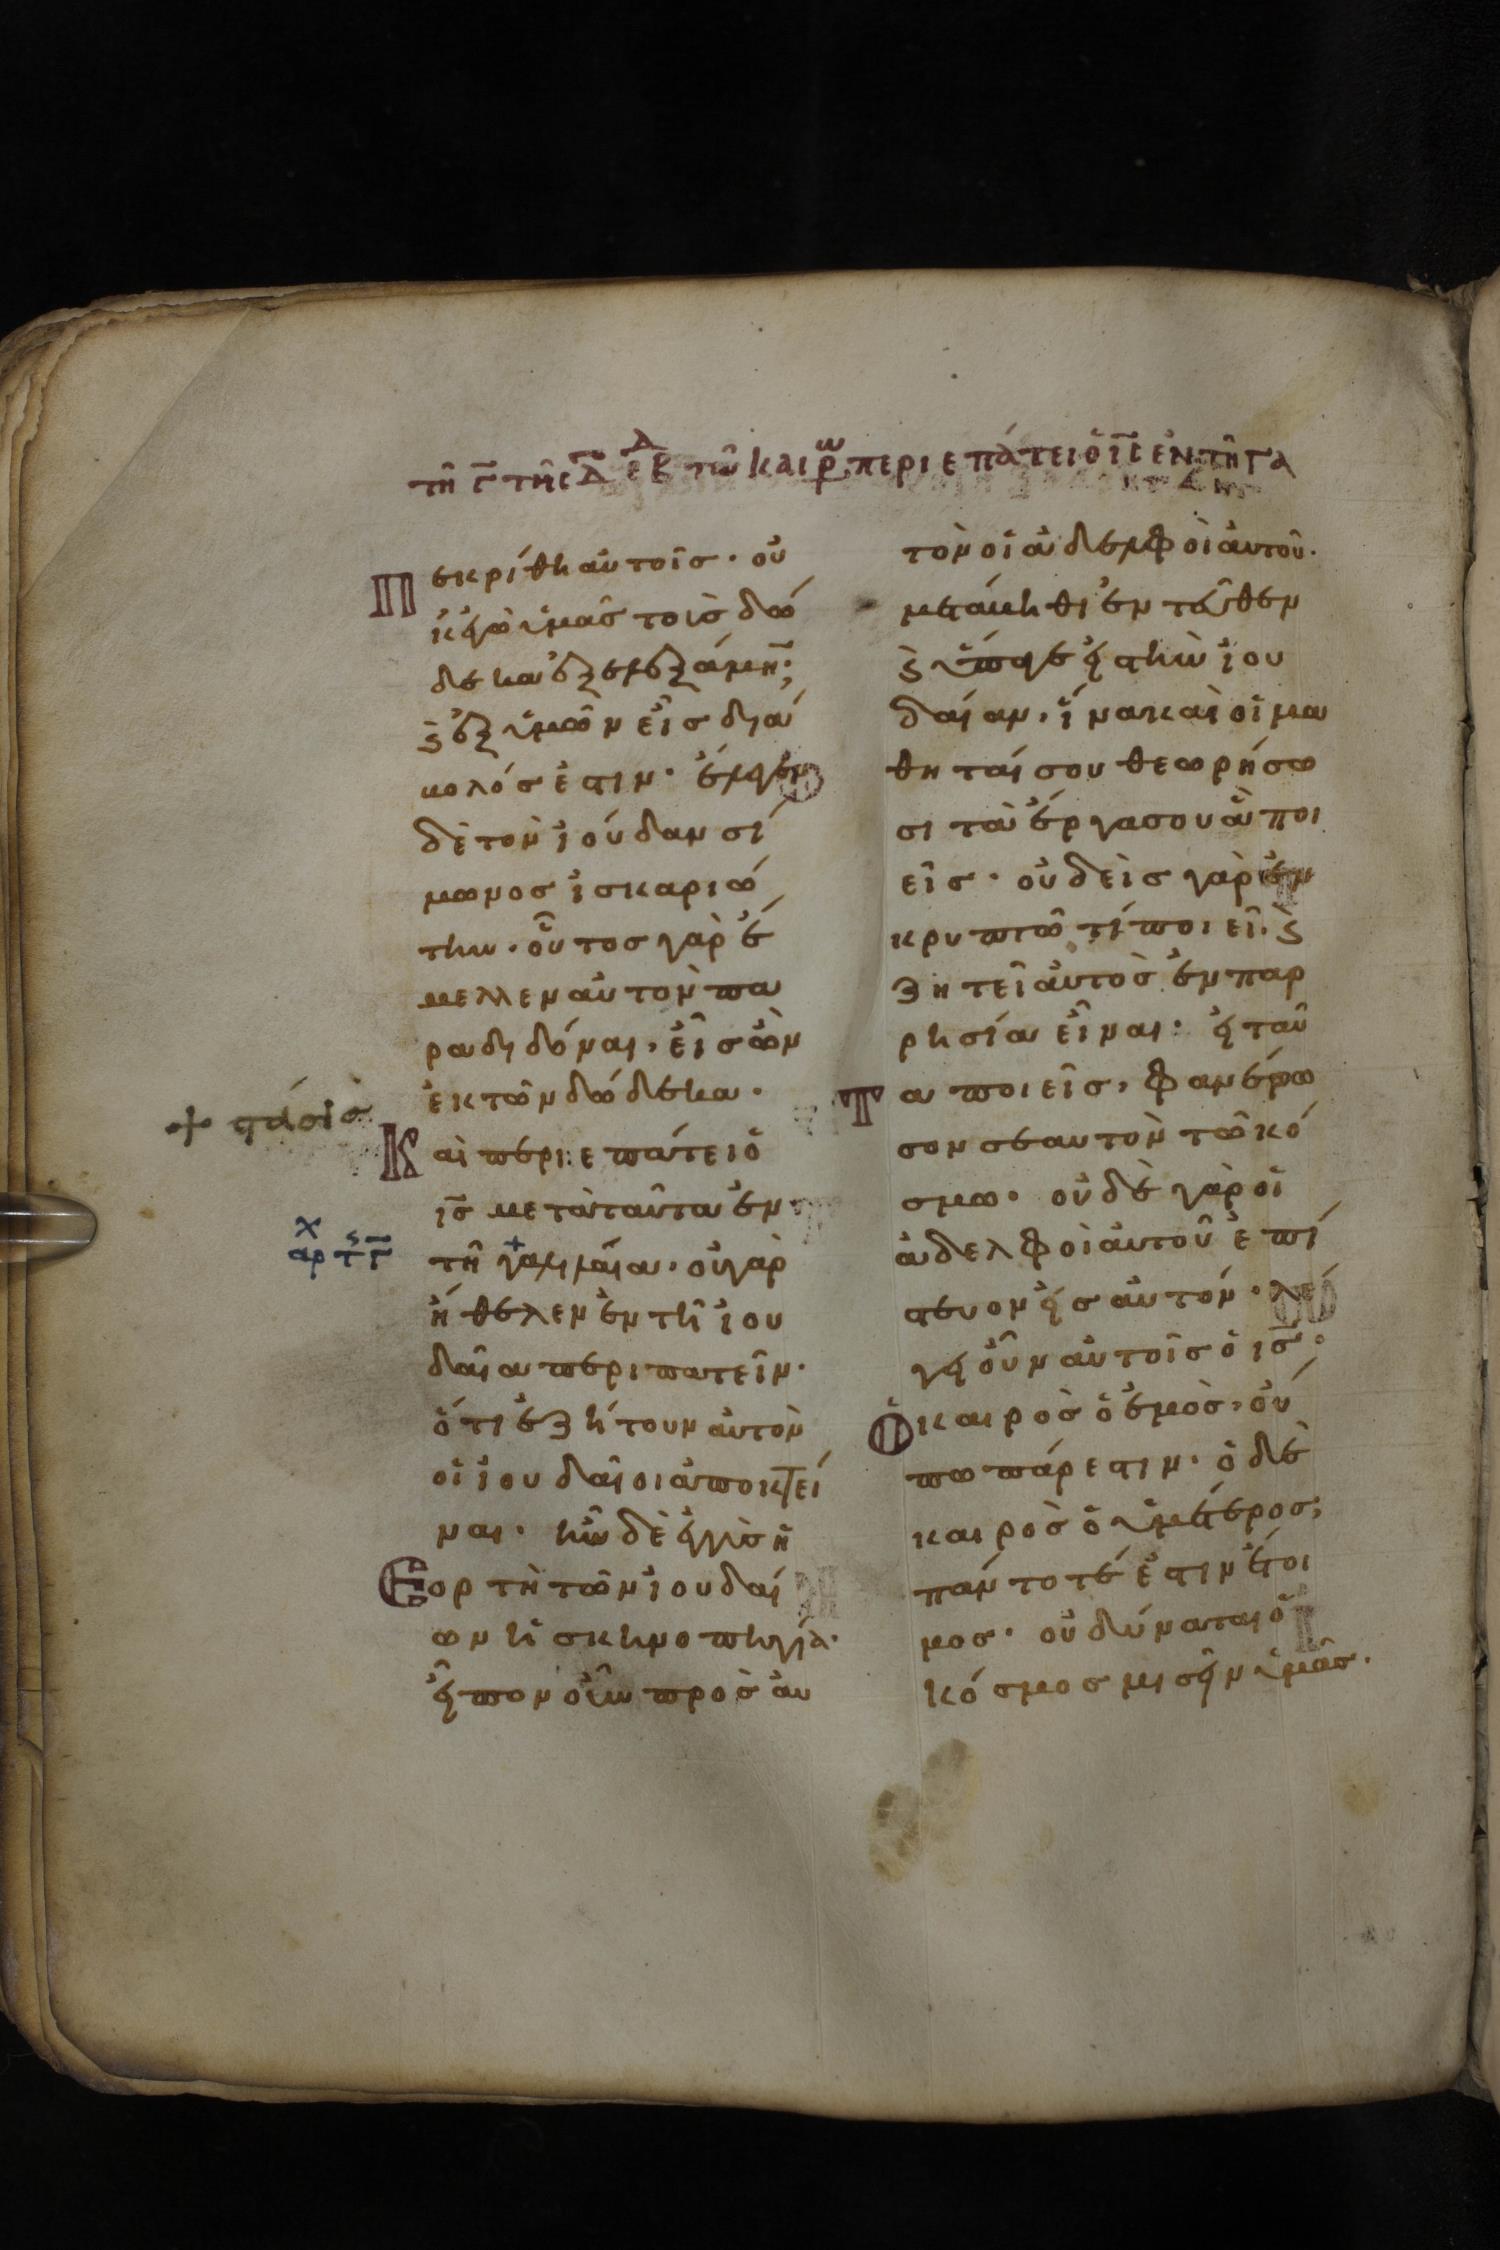 τῆ Γ τῆς Δ ἑβ τῶ καιρῶ περιεπάτει ὁ ις ἐν τῆ γα
Πεκρίθη αὐτοῖσ· οὐ
κ ἐγὼ ὑμᾶσ τοὺσ δώ
δεκα ἐξελεξάμην;
καὶ ἐξ ὑμῶν εἷσ διά
βολόσ ἐστιν· ἔλεγεν
δὲ τὸν ἰούδαν σί
μωνοσ ἰσκαριώ
την· οὗτοσ γὰρ ἔ
μελλεν αὐτὸν πα
ραδιδόναι, εἷσ ὢν
ἐκ τῶν δώδεκα·
στάσις
Καὶ περιεπάτει ὁ
ισ μετὰ ταῦτα ἐν
αρχ τ Γ
τῆ γαλιλαία· οὐ γὰρ
ἤθελεν ἐν τῆ ἰου
δαία περιπατεῖν·
ὅτι ἐζήτουν αὐτὸν
οἱ ἰουδαῖοι ἀποκτεί
ναι· ἦν δὲ ἐγγὺσ ἡ
Ἑορτὴ τῶν ἰουδαί
ων ἡ σκηνοπηγία·
εἶπον οὖν πρὸσ αὐ
τὸν οἱ ἀδελφοὶ αὐτοῦ·
μετάβηθι ἐντεῦθεν
καὶ ὕπαγε εἰσ τὴν ἰου
δαίαν, ἵνα καὶ οἱ μα
θηταί σου θεωρήσω
σι τὰ ἔργα σου ἃ ποι
εῖσ· οὐδεὶσ γὰρ ἐν
κρυπτῶ τί ποιεῖ· καὶ
ζητεῖ αὐτὸσ ἐν παρ
ρησία εἶναι· εἰ ταῦ
Τα ποιεῖσ, φανέρω
σον σεαυτὸν τῶ κό
σμω· οὐδὲ γὰρ οἱ
ἀδελφοὶ αὐτοῦ ἐπί
στευον εἰσ αὐτόν· λέ
γει οὖν αὐτοῖσ ὁ ισ·
Ὁ καιρὸσ ὁ ἐμὸσ, οὔ
πω πάρεστιν· ὁ δὲ
καιρὸσ ὁ ὑμέτεροσ,
πάντοτέ ἐστιν ἕτοι
μοσ· οὐ δύναται ὁ
κόσμοσ μισεῖν ὑμᾶσ·